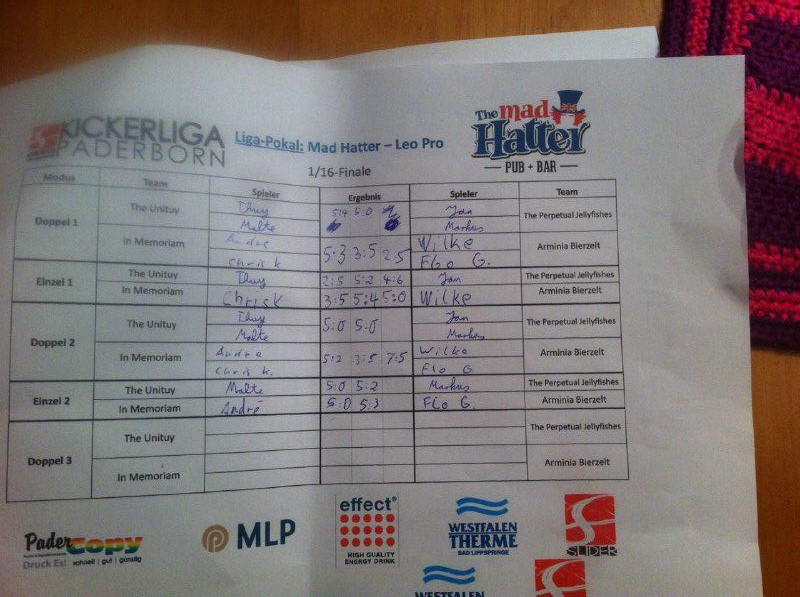 KICKERLIGA
PADERBORN
Liga-Pokal: Mad Hatter – Leo Pro
1/16-Finale
The mad
Hatter
PUB + BAR
Modus Team Spieler Ergebnis Spieler Team
Doppel 1 The Unituy Thuy 5:4 5:0 Jan The Perpetual Jellyfishes
Malte Markus
In Memoriam Andre 5:3 3:5 2:5 Wilke Arminia Bierzelt
Chris K Flo G.
Einzel 1 The Unituy Thuy 2:5 5:2 4:6 Jan The Perpetual Jellyfishes
In Memoriam Chris K 3:5 5:4 5:0 Wilke Arminia Bierzelt
Doppel 2 The Unituy Thuy 5:0 5:0 Jan The Perpetual Jellyfishes
Malte Markus
In Memoriam Andre 5:2 3:5 7:5 Wilke Arminia Bierzelt
Chris K. Flo G.
Einzel 2 The Unituy Malte 5:0 5:2 Markus The Perpetual Jellyfishes
In Memoriam André 5:0 5:3 Flo G. Arminia Bierzelt
Doppel 3 The Unituy The Perpetual Jellyfishes
In Memoriam Arminia Bierzelt
PaderCopy
Druck Es! schnell | gut | günstig
MLP
effect®
HIGH QUALITY
ENERGY DRINK
WESTFALEN
THERME
BAD LIPPSPRINGE
SLIDER
WESTFALEN